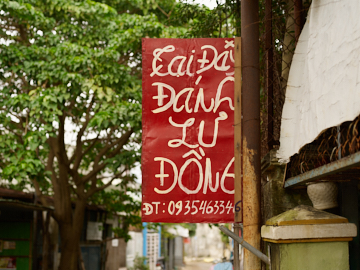 Tại Đây
Đánh
Lư
Đồng
ĐT: 0935463346